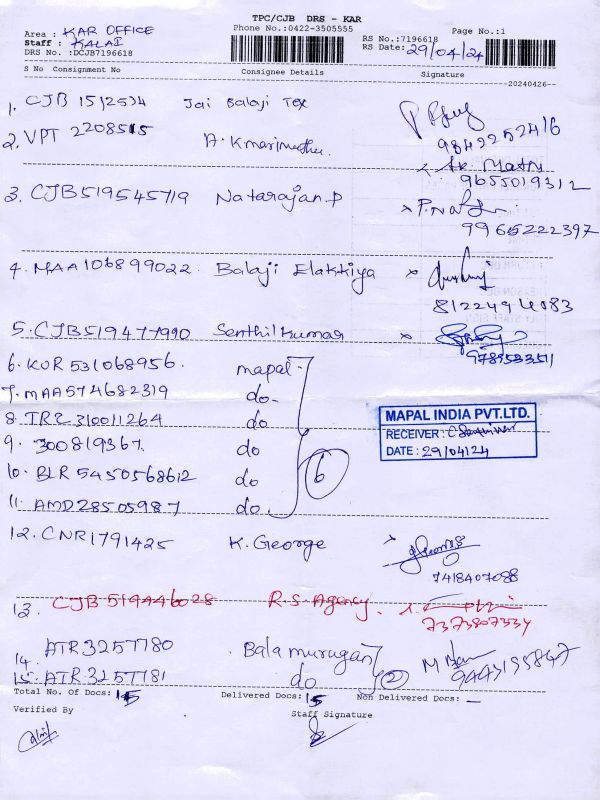 TPC/CJB DRS - KAR
Area : KAR OFFICE
Phone No.:0422-3505555
Page No.:1
Staff : KALAI
RS No.:7196618
DRS No. :DCJB7196618
RS Date: 29/04/24
S No Consignment No Consignee Details Signature
--20240426--
1. CJB 1512534 Jai Balaji Tex
9842252416
2. VPT 2208515 A. K marimuthu
9655019312
3. CJB519545719 Natarajan.P
9965222397
4. MAA106899022. Balaji Elakkiya
8122494083
5. CJB519477990 Senthil kumar
978953351
6. KUR 531068956. mapal
7. MAA574682319 do
8. TRZ 310011264 do
MAPAL INDIA PVT.LTD.
RECEIVER :
DATE : 29/04/24
9. 300819367. do
10. BLR 5450568612 do
6
11. AMD28505987 do
12. CNR1791425 K. George
7418407088
13. CJB 519446028 R.S. Agency.
7373807334
14. ATR3257780 Balamurugan
15. ATR3257781 do 2
9443195847
Total No. Of Docs: 15 Delivered Docs: 15 Non Delivered Docs: -
Verified By Staff Signature